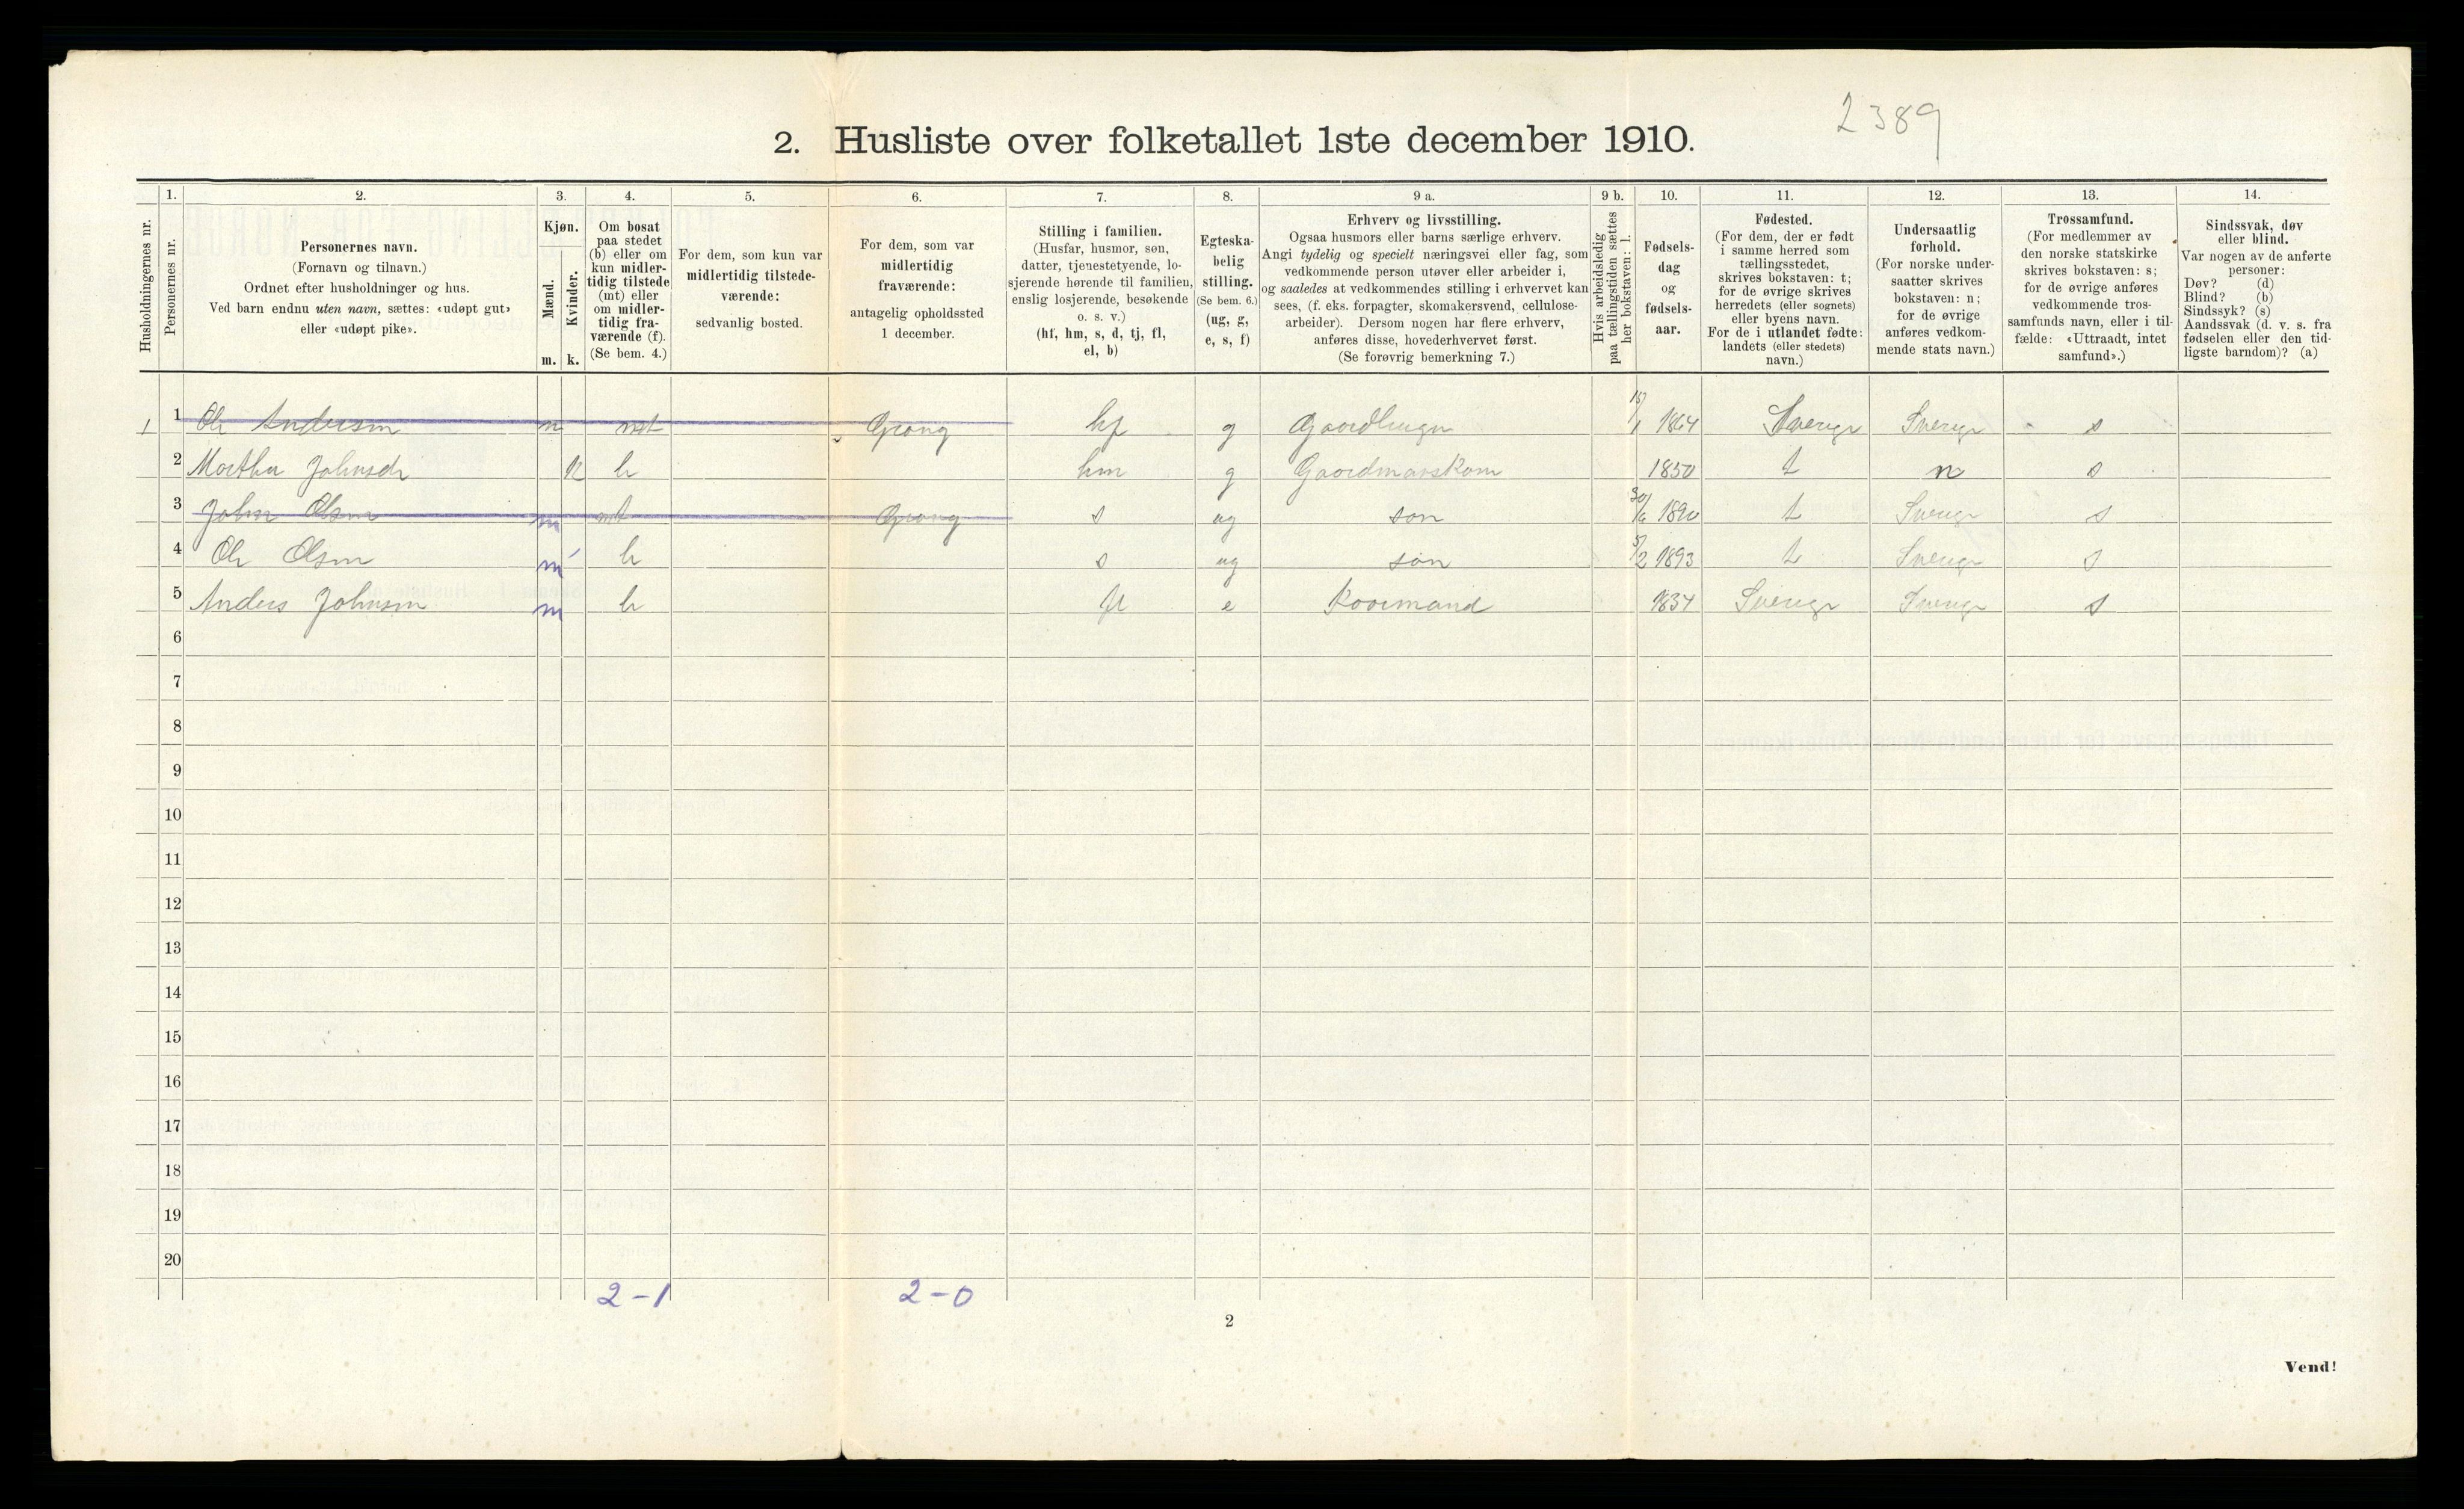 2389
2. Husliste over folketallet 1ste december 1910.
Husholdningernes nr.
1.
Personernes nr.
2.
Personernes navn.
(Fornavn og tilnavn.)
Ordnet efter husholdninger og hus.
Ved barn endnu uten navn, sættes: «udøpt gut»
eller «udøpt pike».
3.
Kjøn.
Mænd.
Kvinder.
m. k.
4.
Om bosat
paa stedet
(b) eller om
kun midler-
tidig tilstede
(mt) eller
om midler-
tidig fra-
værende (f).
(Se bem. 4.)
5.
For dem, som kun var
midlertidig tilstede-
værende:
sedvanlig bosted.
6.
For dem, som var
midlertidig
fraværende:
antagelig opholdssted
1 december.
7.
Stilling i familien.
(Husfar, husmor, søn,
datter, tjenestetyende, lo-
sjerende hørende til familien,
enslig losjerende, besøkende
o. s. v.)
(hf, hm, s, d, tj, fl,
el, b)
8.
Egteska-
belig
stilling.
(Se bem. 6.)
(ug, g,
e, s, f)
9 a.
Erhverv og livsstilling.
Ogsaa husmors eller barns særlige erhverv.
Angi tydelig og specielt næringsvei eller fag, som
vedkommende person utøver eller arbeider i,
og saaledes at vedkommendes stilling i erhvervet kan
sees, (f. eks. forpagter, skomakersvend, cellulose-
arbeider). Dersom nogen har flere erhverv,
anføres disse, hovederhvervet først.
(Se forøvrig bemerkning 7.)
9 b.
Hvis arbeidsledig
paa tællingstiden sættes
her bokstaven: l.
10.
Fødsels-
dag
og
fødsels-
aar.
11.
Fødested.
(For dem, der er født
i samme herred som
tællingsstedet,
skrives bokstaven: t;
for de øvrige skrives
herredets (eller sognets)
eller byens navn.
For de i utlandet fødte:
landets (eller stedets)
navn.)
12.
Undersaatlig
forhold.
(For norske under-
saatter skrives
bokstaven: n;
for de øvrige
anføres vedkom-
mende stats navn.)
13.
Trossamfund.
(For medlemmer av
den norske statskirke
skrives bokstaven: s;
for de øvrige anføres
vedkommende tros-
samfunds navn, eller i til-
fælde: «Uttraadt, intet
samfund».)
14.
Sindssvak, døv
eller blind.
Var nogen av de anførte
personer:
Døv? (d)
Blind? (b)
Sindssyk? (s)
Aandssvak (d. v. s. fra
fødselen eller den tid-
ligste barndom)? (a)
1 1 Ole Andersen m mt Grong hf g 1864 Sverige Sverige s
2 Johnsdr k b hm g 1850 t n s
3 John Olsen m mt Grong s ug søn 30/6 1890 t Sverige s
4 Ole Olsen m b s ug søn 5/2 1893 t Sverige s
5 Anders Johnsen m b fl e Kaarmand 1834 Sverige Sverige s
6
7
8
9
10
11
12
13
14
15
16
17
18
19
20
2-1 2-0
2
Vend!